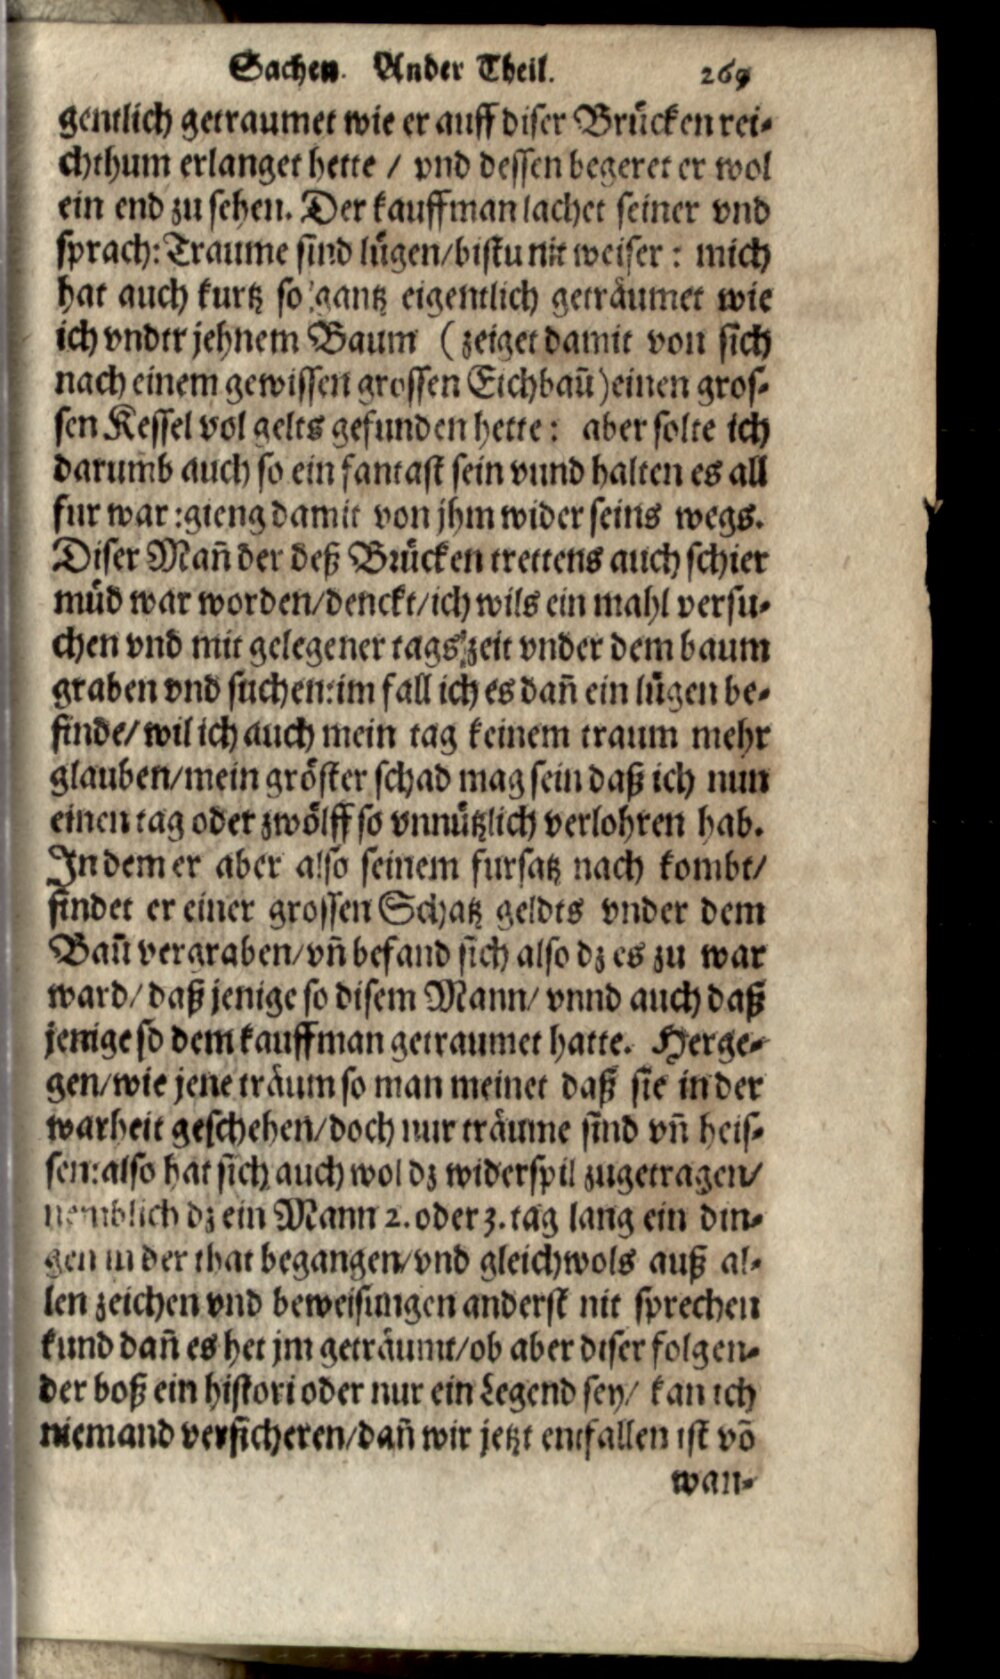 Sachen. Ander Theil. 269
gentlich getraumet wie er auff diser Brücken rei-
chthum erlanget hette / vnd dessen begeret er wol
ein end zu sehen. Der kauffman lachet seiner vnd
sprach: Traume sind lügen/bistu nit weiser: mich
hat auch kurtz so gantz eigentlich geträumet wie
ich vndtr jehnem Baum (zeiget damit von sich
nach einem gewissen grossen Eichbaū) einen gros-
sen Kessel vol gelts gefunden hette: aber solte ich
darumb auch so ein fantast sein vnnd halten es all
fur war: gieng damit von jhm wider seins wegs.
Diser Mañ der deß Brücken trettens auch schier
müd war worden/denckt/ich wils ein mahl versu-
chen vnd mit gelegener tags zeit vnder dem baum
graben vnd suchen: im fall ich es dañ ein lügen be-
finde/ wil ich auch mein tag keinem traum mehr
glauben/mein gröster schad mag sein daß ich nun
einen tag oder zwölff so vnnützlich verlohren hab.
In dem er aber also seinem fursatz nach kombt/
findet er einer grossen Schatz geldts vnder dem
Baū vergraben/vñ befand sich also dz es zu war
ward/ daß jenige so disem Mann/ vnnd auch daß
jenige so dem kauffman getraumet hatte. Herge-
gen/wie jene träum so man meinet daß sie in der
warheit geschehen/doch nur träume sind vñ heis-
sen: also hat sich auch wol dz widerspil zugetragen/
nemblich dz ein Mann 2. oder 3. tag lang ein din-
gen in der that begangen/vnd gleichwols auß al-
len zeichen vnd beweisungen anderst nit sprechen
kund dañ es het jm geträumt/ob aber diser folgen-
der boß ein histori oder nur ein Legend sey/ kan ich
niemand versicheren/dañ wir jetzt entfallen ist võ
wan-